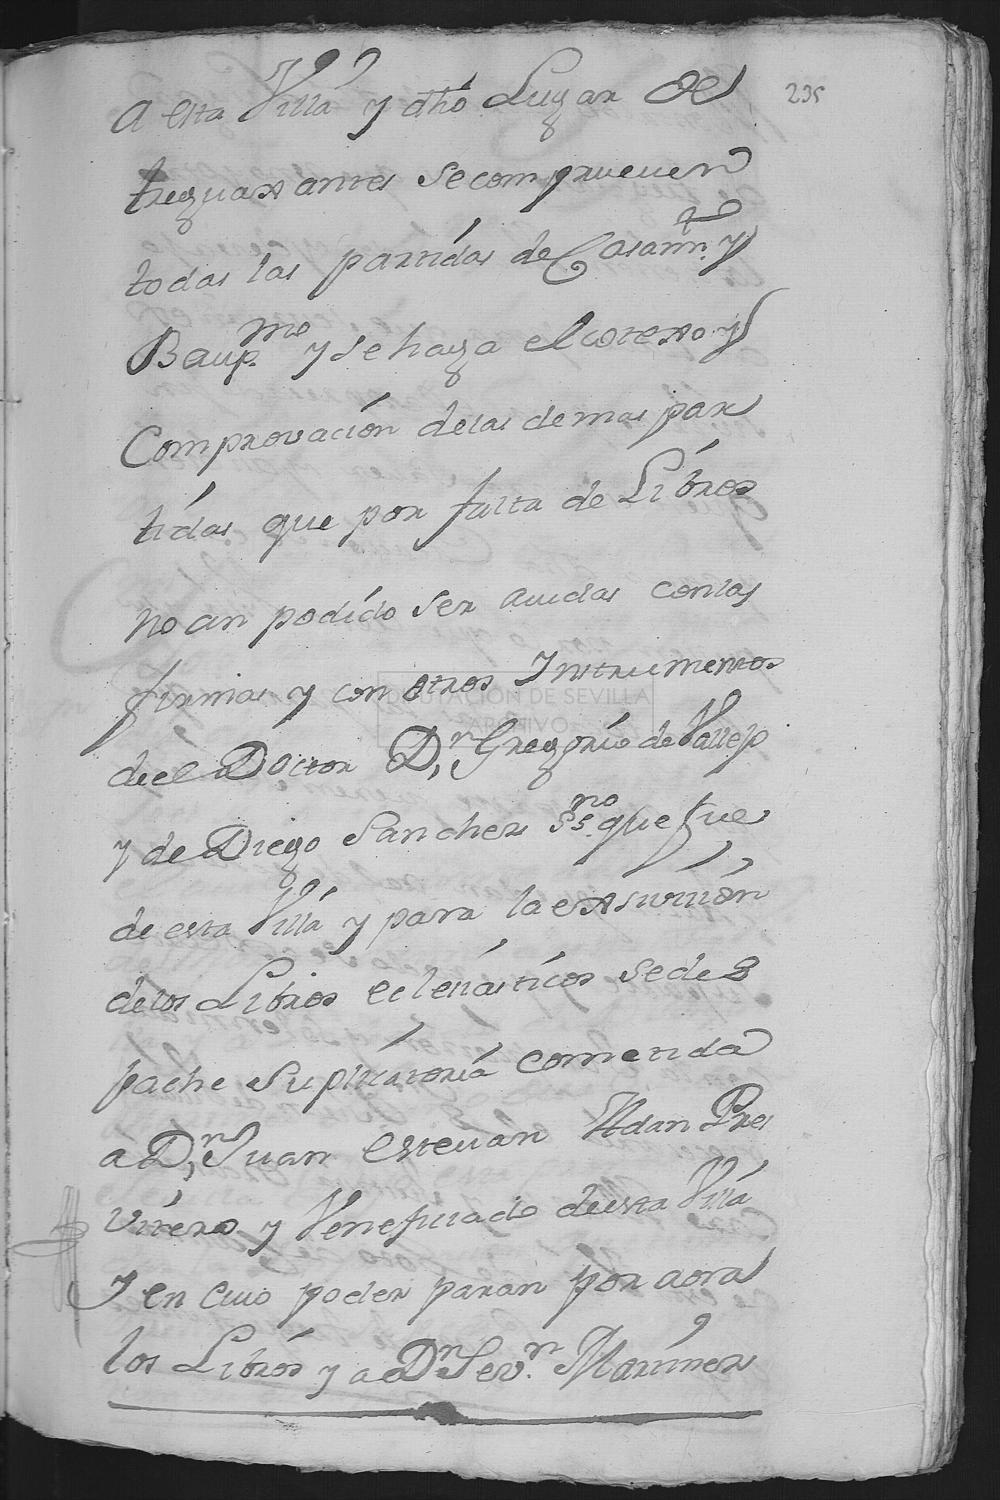 235
a esta Villa y dho Lugar de
treguaxantes se comprueuen
todas las partidas de Casamtº. y
Baup.mos y se haga el cotexo y
Comprovación delas demas par
tidas que por falta de Libros
no an podido ser auidas con las
firmas y con otros Ynstrumentos
de el Doctor Dn Gregorio de Vallejo
y de Diego Sanches Ss.no que fue
de esta Villa y para la exsivición
delos Libros eclesiasticos se des
pache suplicatoria cometida
a Dn Juan esteuan Adan Pres
vitero y Veneficiado de esta Villa
Y en cuio poder paran por aora
los Libros y a Dn Sev.n Martines
DIPUTACIÓN DE SEVILLA
ARCHIVO